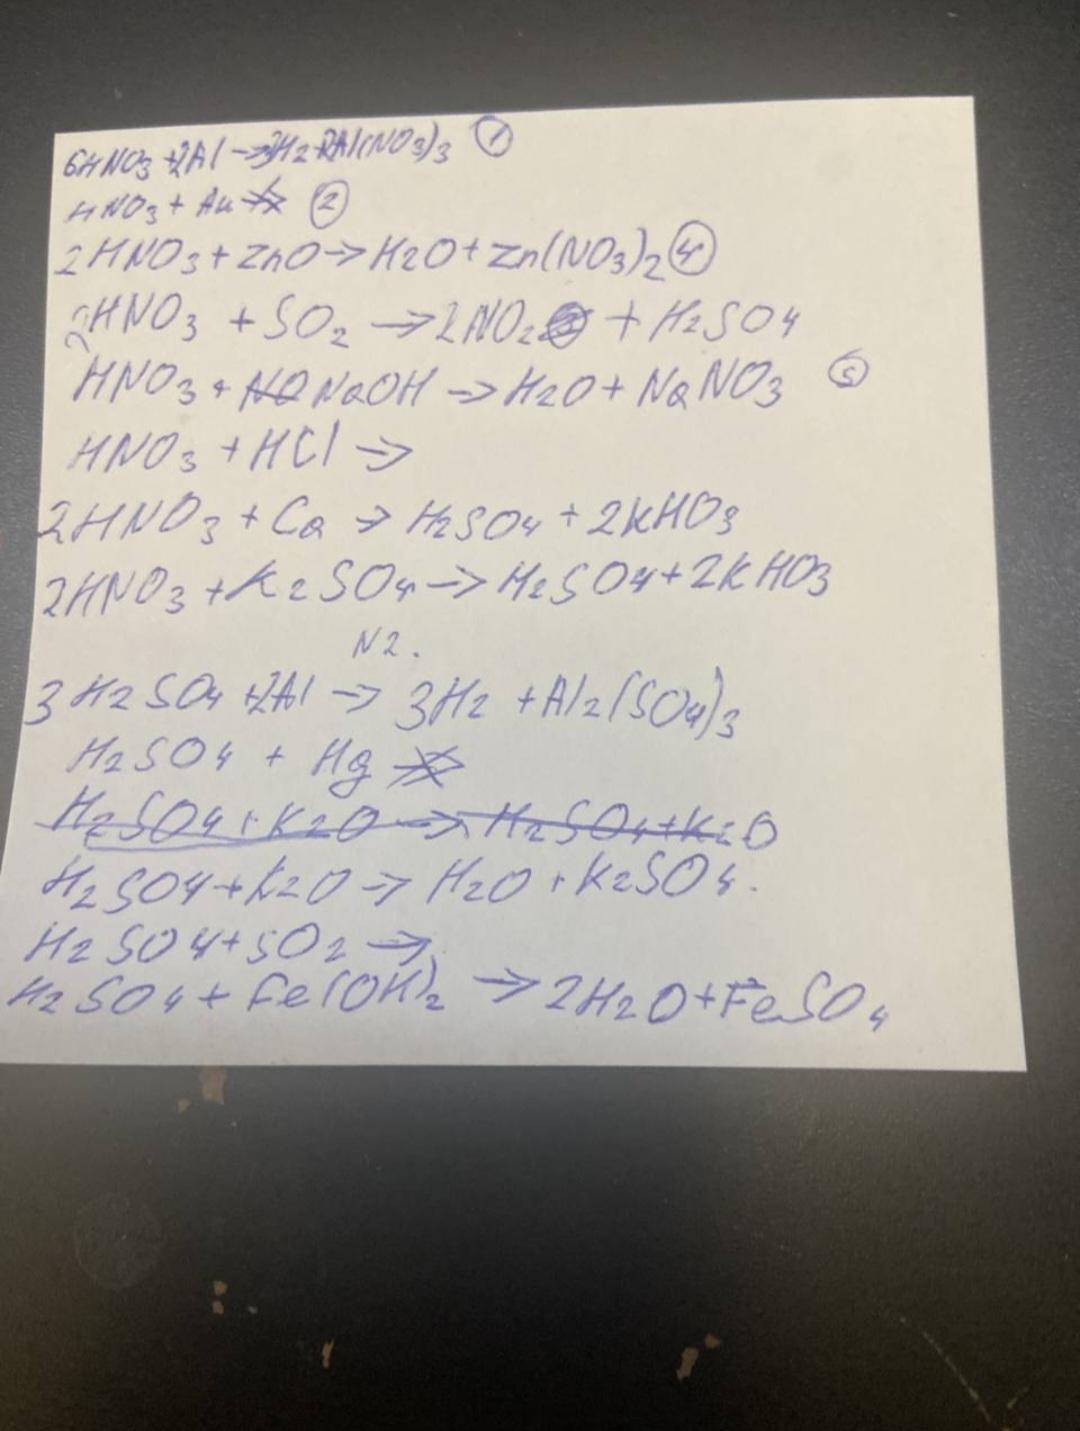 6HNO3 + 2Al → 3H2 + 2Al(NO3)3 ①
HNO3 + Au ↛ ②
2HNO3 + ZnO → H2O + Zn(NO3)2 ④
2HNO3 + SO2 → 2NO2 + H2SO4
HNO3 + NaOH → H2O + NaNO3 ⑤
HNO3 + HCl →
2HNO3 + Ca → H2SO4 + 2KHO3
2HNO3 + K2SO4 → H2SO4 + 2KHO3
N2.
3H2SO4 + 2Al → 3H2 + Al2(SO4)3
H2SO4 + Hg ↛
H2SO4 + K2O → H2SO4 + K2O
H2SO4 + K2O → H2O + K2SO4.
H2SO4 + SO2 →
H2SO4 + Fe(OH)2 → 2H2O + FeSO4